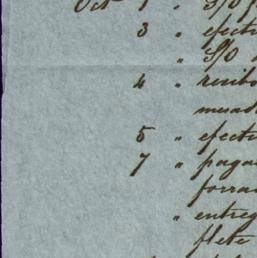 Oct 1 " S/O
3 " efect
" S/O
4 " recibo
5 " efect
7 " paga
forra
" entreg
flete